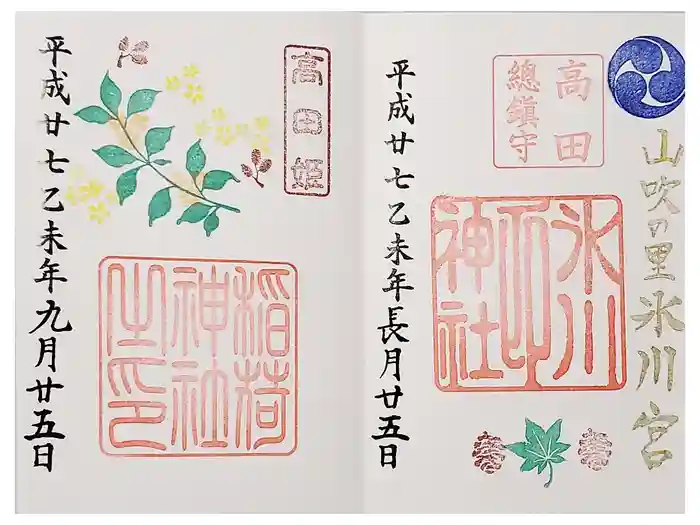 山吹の里氷川宮
高田
總鎮守
氷川
神社
平成廿七乙未年長月廿五日
高田姫
稲荷
神社
之印
平成廿七乙未年九月廿五日